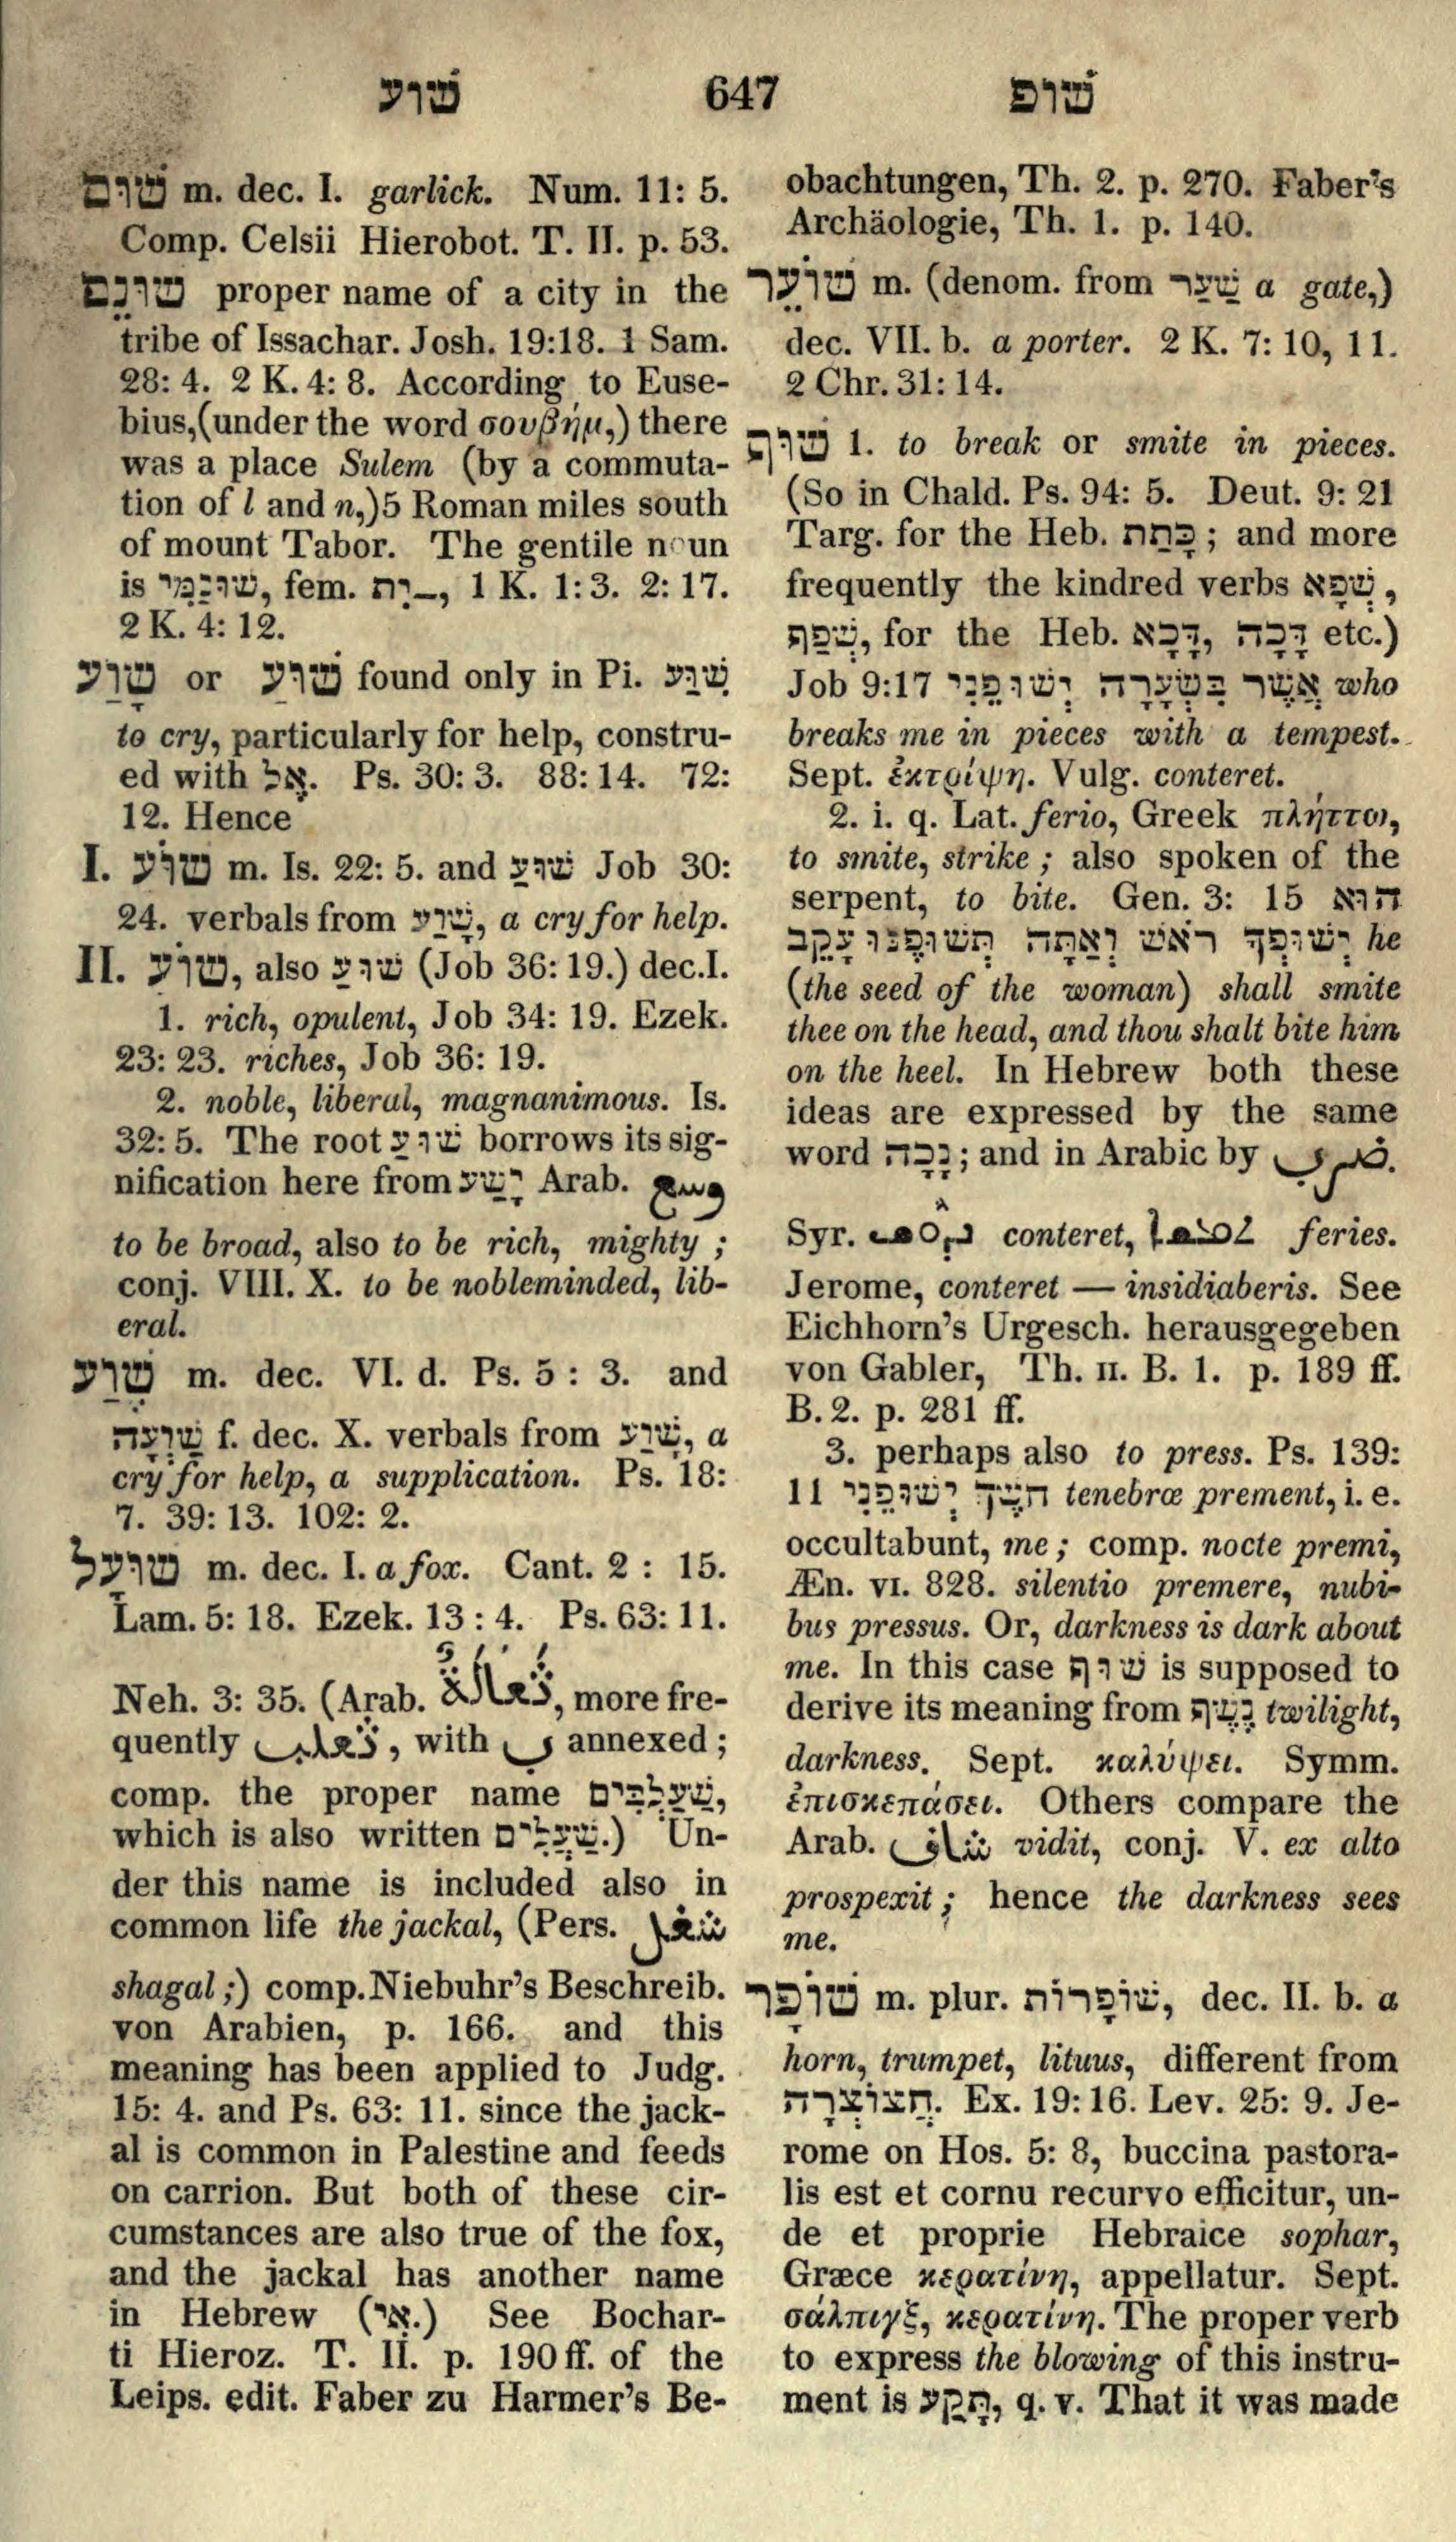 שוע 647 שופ
שׁוּם m. dec. I. garlick. Num. 11: 5.
Comp. Celsii Hierobot. T. II. p. 53.
שׁוּנֵם proper name of a city in the
tribe of Issachar. Josh. 19:18. 1 Sam.
28: 4. 2 K. 4: 8. According to Euse-
bius,(under the word σουβήμ,) there
was a place Sulem (by a commuta-
tion of l and n,)5 Roman miles south
of mount Tabor. The gentile noun
is שׁוּנַמִּי, fem. ־ִית, 1 K. 1: 3. 2: 17.
2 K. 4: 12.
שָׁוַע or שׁוּעַ found only in Pi. שִׁוַּע
to cry, particularly for help, constru-
ed with אֶל. Ps. 30: 3. 88: 14. 72:
12. Hence
I. שׁוֹעַ m. Is. 22: 5. and שׁוּעַ Job 30:
24. verbals from שָׁוַע, a cry for help.
II. שׁוֹעַ, also שׁוּעַ (Job 36: 19.) dec.I.
1. rich, opulent, Job 34: 19. Ezek.
23: 23. riches, Job 36: 19.
2. noble, liberal, magnanimous. Is.
32: 5. The root שׁוּעַ borrows its sig-
nification here from יָשַׁע Arab. وسع
to be broad, also to be rich, mighty ;
conj. VIII. X. to be nobleminded, lib-
eral.
שֶׁוַע m. dec. VI. d. Ps. 5 : 3. and
שַׁוְעָה f. dec. X. verbals from שָׁוַע, a
cry for help, a supplication. Ps. 18:
7. 39: 13. 102: 2.
שׁוּעָל m. dec. I. a fox. Cant. 2 : 15.
Lam. 5: 18. Ezek. 13 : 4. Ps. 63: 11.
Neh. 3: 35. (Arab. ثُعَالَةٌ, more fre-
quently ثعلب, with ب annexed ;
comp. the proper name שַׁעַלְבִים,
which is also written שַׁעֲלִים.) Un-
der this name is included also in
common life the jackal, (Pers. شغل
shagal ;) comp.Niebuhr's Beschreib.
von Arabien, p. 166. and this
meaning has been applied to Judg.
15: 4. and Ps. 63: 11. since the jack-
al is common in Palestine and feeds
on carrion. But both of these cir-
cumstances are also true of the fox,
and the jackal has another name
in Hebrew (אִי.) See Bochar-
ti Hieroz. T. II. p. 190 ff. of the
Leips. edit. Faber zu Harmer's Be-
obachtungen, Th. 2. p. 270. Faber's
Archäologie, Th. 1. p. 140.
שׁוֹעֵר m. (denom. from שַׁעַר a gate,)
dec. VII. b. a porter. 2 K. 7: 10, 11.
2 Chr. 31: 14.
שׁוּף 1. to break or smite in pieces.
(So in Chald. Ps. 94: 5. Deut. 9: 21
Targ. for the Heb. כָּתַת ; and more
frequently the kindred verbs שְׁפָא,
שְׁפַף, for the Heb. דָּכָא, דָּכָה etc.)
Job 9:17 אֲשֶׁר בִּשְׂעָרָה יְשׁוּפֵנִי who
breaks me in pieces with a tempest.
Sept. ἐκτρίψη. Vulg. conteret.
2. i. q. Lat. ferio, Greek πλήττω,
to smite, strike ; also spoken of the
serpent, to bite. Gen. 3: 15 הוּא
יְשׁוּפְךָ רֹאשׁ וְאַתָּה תְּשׁוּפֶנּוּ עָקֵב he
(the seed of the woman) shall smite
thee on the head, and thou shalt bite him
on the heel. In Hebrew both these
ideas are expressed by the same
word נָכָה ; and in Arabic by ضرب.
Syr. conteret, feries.
Jerome, conteret — insidiaberis. See
Eichhorn's Urgesch. herausgegeben
von Gabler, Th. II. B. 1. p. 189 ff.
B. 2. p. 281 ff.
3. perhaps also to press. Ps. 139:
11 חֹשֶׁךְ יְשׁוּפֵנִי tenebræ prement, i. e.
occultabunt, me ; comp. nocte premi,
Æn. VI. 828. silentio premere, nubi-
bus pressus. Or, darkness is dark about
me. In this case שׁוּף is supposed to
derive its meaning from נֶשֶׁף twilight,
darkness. Sept. καλύψει. Symm.
ἐπισκεπάσει. Others compare the
Arab. شاف vidit, conj. V. ex alto
prospexit ; hence the darkness sees
me.
שׁוֹפָר m. plur. שׁוֹפָרוֹת, dec. II. b. a
horn, trumpet, lituus, different from
חֲצוֹצְרָה. Ex. 19: 16. Lev. 25: 9. Je-
rome on Hos. 5: 8, buccina pastora-
lis est et cornu recurvo efficitur, un-
de et proprie Hebraice sophar,
Græce κερατίνη, appellatur. Sept.
σάλπιγξ, κερατίνη. The proper verb
to express the blowing of this instru-
ment is תָּקַע, q. v. That it was made